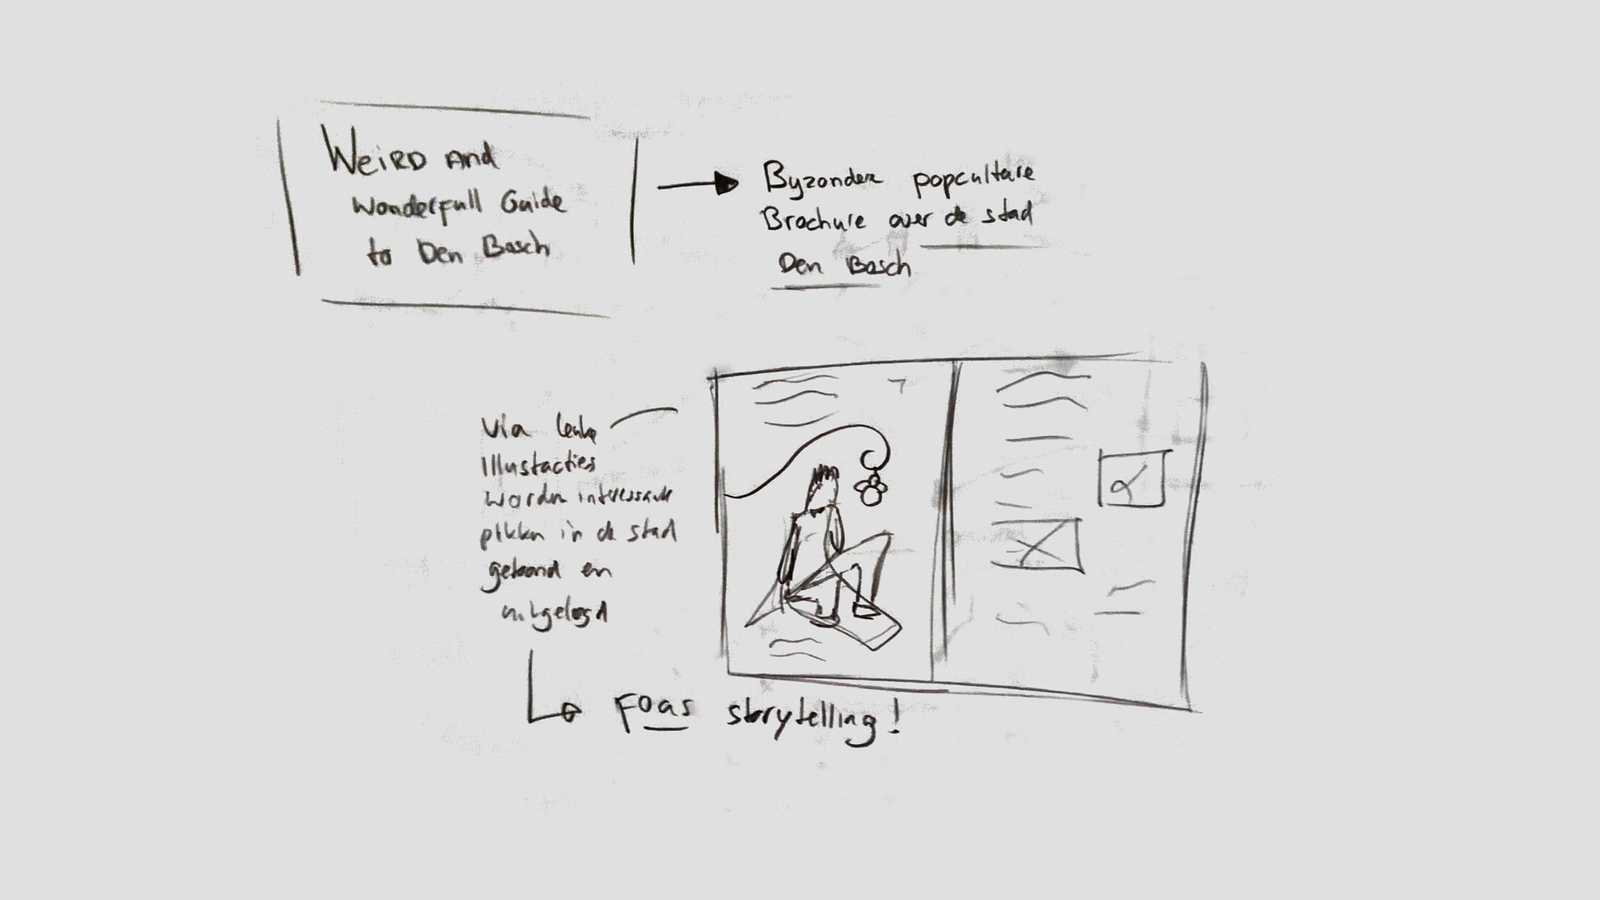 Weird and
Wonderfull Guide
to Den Bosch
Byzonder popcultare
Brochure over de stad
Den Bosch
Via leuke
Illustacties
worden interessante
plkken in de stad
getoond en
uitgelegd
storytelling!